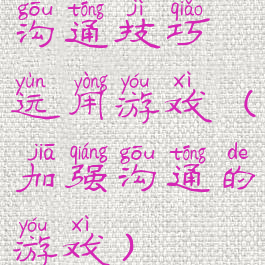 gōu tōng jì qiǎo
沟通技巧
yùn yòng yóu xì
运用游戏（
jiā qiáng gōu tōng de
加强沟通的
yóu xì
游戏）